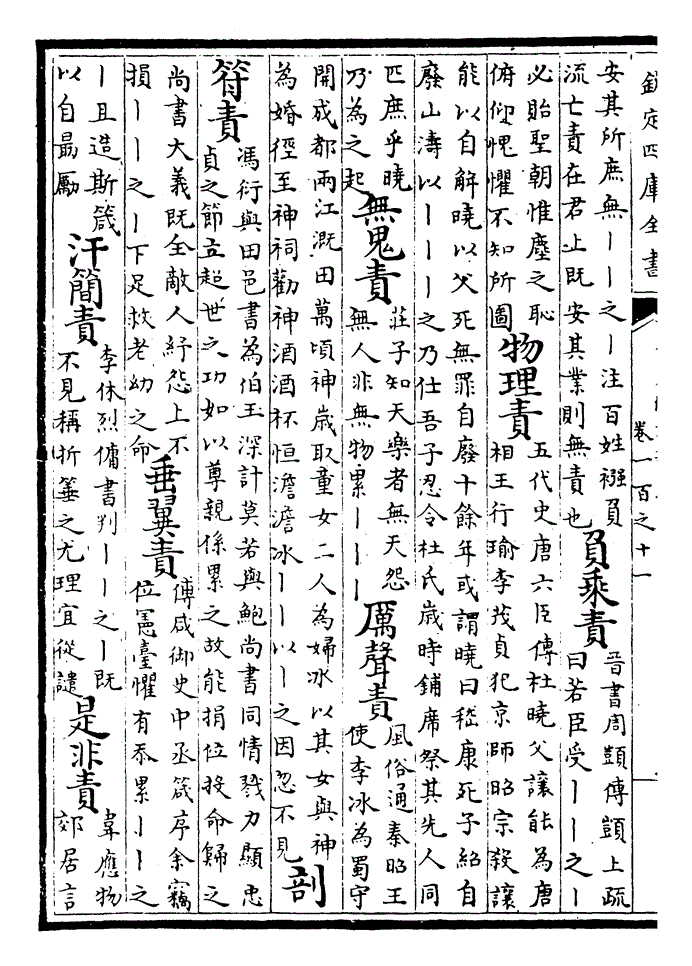 欽定四庫全書
卷一百之十一
安其所庶無丨丨之丨注百姓襁負
流亡責在君上既安其業則無責也
負乘責
晉書周顗傳顗上疏
曰若臣受丨丨之丨
必貽聖朝惟塵之恥
俯仰愧懼不知所圖
物理責
五代史唐六臣傳杜曉父讓能為唐
相王行瑜李茂貞犯京師昭宗殺讓
能以自解曉以父死無罪自廢十餘年或謂曉曰嵇康死子紹自
廢山濤以丨丨丨之乃仕吾子忍令杜氏歲時鋪席祭其先人同
匹庶乎曉
乃為之起
無鬼責
莊子知天樂者無天怨
無人非無物累丨丨丨
厲聲責
風俗通秦昭王
使李冰為蜀守
開成都兩江溉田萬頃神歲取童女二人為婦冰以其女與神
為婚徑至神祠勸神酒酒杯恒澹澹冰丨丨以丨之因忽不見
剖
符責
馮衍與田邑書為伯玉深計莫若與鮑尚書同情戮力顯忠
貞之節立超世之功如以尊親係累之故能捐位投命歸之
尚書大義既全敵人紓怨上不
損丨丨之丨下足救老幼之命
垂翼責
傅咸御史中丞箴序余竊
位憲臺懼有忝累丨丨之
丨且造斯箴
以自朂勵
汗簡責
李休烈傭書判丨丨之丨既
不見稱折箠之尤理宜從譴
是非責
韋應物
郊居言